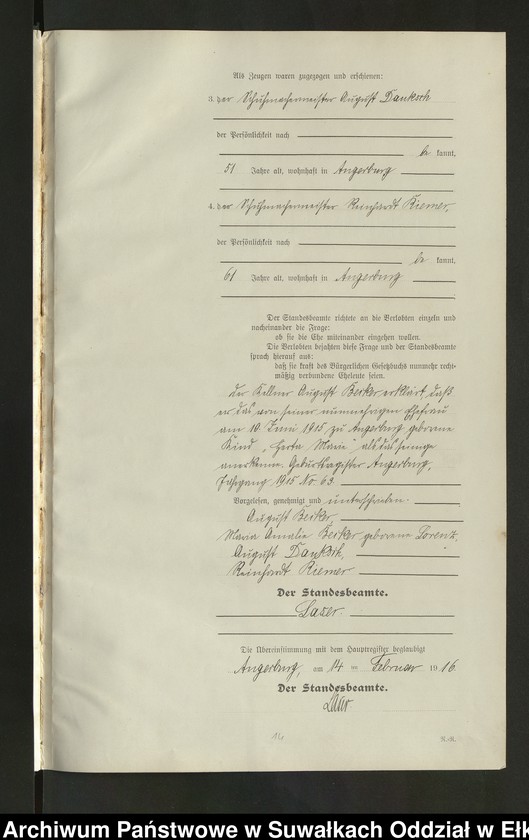 Als Zeugen waren zugezogen und erschienen:
3. der Schuhmachermeister August Danksch
der Persönlichkeit nach
be kannt,
51 Jahre alt, wohnhaft in Angerburg
4. der Schuhmachermeister Reinhardt Riemer,
der Persönlichkeit nach
be kannt,
61 Jahre alt, wohnhaft in Angerburg
Der Standesbeamte richtete an die Verlobten einzeln und
nacheinander die Frage:
ob sie die Ehe miteinander eingehen wollen.
Die Verlobten bejahten diese Frage und der Standesbeamte
sprach hierauf aus:
daß sie kraft des Bürgerlichen Gesetzbuchs nunmehr recht-
mäßig verbundene Eheleute seien.
Der Kellner August Beiker erklärt, daß
er das von seiner nunmehrigen Ehefrau
am 10. Juni 1915 zu Angerburg geborene
Kind „Herta Marie" als das seinige
anerkenne. Geburtsregister Angerburg,
Jahrgang 1915 No 63.
Vorgelesen, genehmigt und unterschrieben.
August Beiker,
Maria Amalie Beiker geborene Lorenz,
August Danksch,
Reinhardt Riemer
Der Standesbeamte.
Lazer.
Die Übereinstimmung mit dem Hauptregister beglaubigt
Angerburg, am 14 ten Februar 19 16.
Der Standesbeamte.
B.-R.
Archiwum Państwowe w Suwałkach Oddział w Ełk